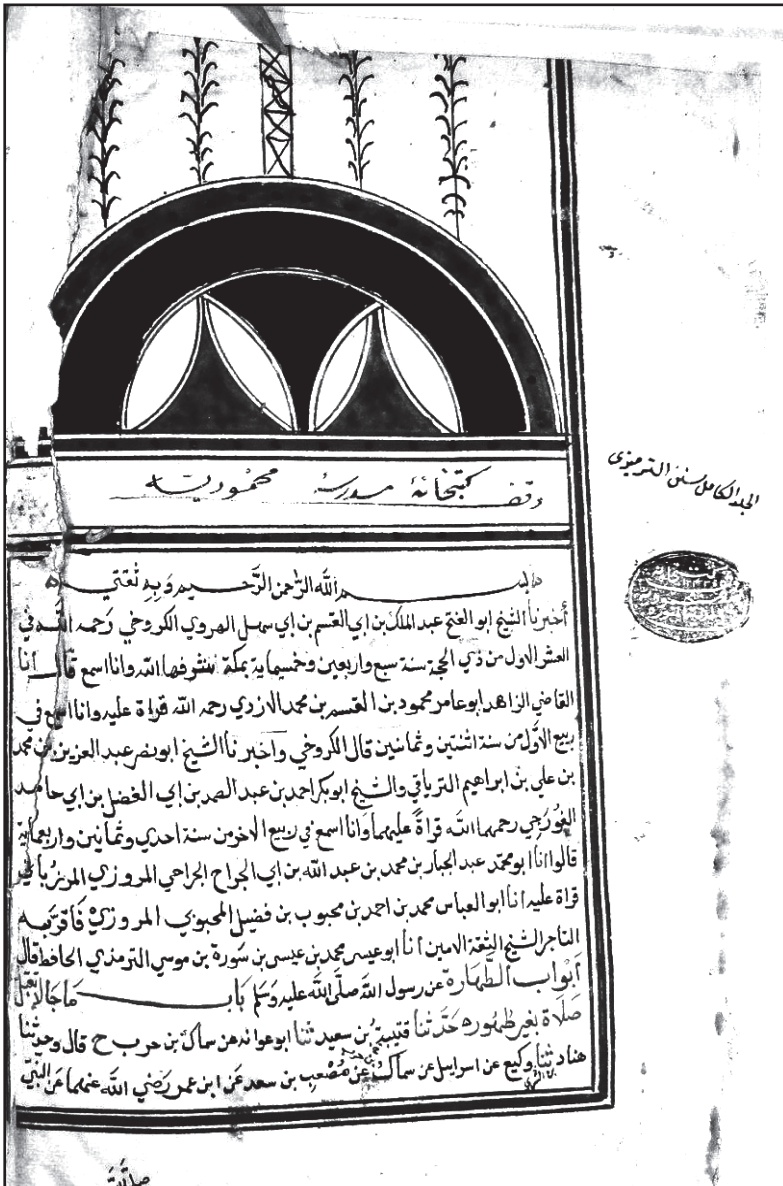 وقف كتبخانهٔ مدرسهٔ محموديه
المجلد الكامل سنن الترميذى
بسم الله الرحمن الرحيم وبه ثقتي
أخبرنا الشيخ ابو الفتح عبد الملك بن ابي القسم بن ابي سهل الهروي الكروخي رحمه الله في
العشر الاول من ذي الحجة سنة سبع واربعين وخمسماية بمكة شرفها الله وانا اسمع قال انا
القاضي الزاهد ابو عامر محمود بن القسم بن محمد الازدي رحمه الله قراة عليه وانا اسمع في
ربيع الاول من سنة اثنتين وثمانين قال الكروخي واخبرنا الشيخ ابو نصر عبد العزيز بن محمد
بن علي بن ابراهيم الترياقي والشيخ ابو بكر احمد بن عبد الصمد بن ابي الفضل بن ابي حامد
الغورجي رحمهما الله قراةً عليهما وانا اسمع في ربيع الاخر من سنة احدي وثمانين واربعماية
قالوا انا ابو محمد عبد الجبار بن محمد بن عبد الله بن ابي الجراح الجراحي المروزي المرزباني
قراة عليه انا ابو العباس محمد بن احمد بن محبوب بن فضيل المحبوبي المروزي فاقر به
التاجر الشيخ الثقة الامين أنا ابو عيسى محمد بن عيسى بن سَورة بن موسي الترمذي الحافظ قال
أبواب الطهارة عن رسول الله صلى الله عليه وسلم باب ما جا لا تقبل
صلاة بغير طهور حدثنا قتيبة بن سعيد ثنا ابو عوانه عن سماك بن حرب ح قال وحدثنا
هناد ثنا وكيع عن اسرايل عن سماك عن مُصعب بن سعد عن ابن عمر رضي الله عنهما عن النبي